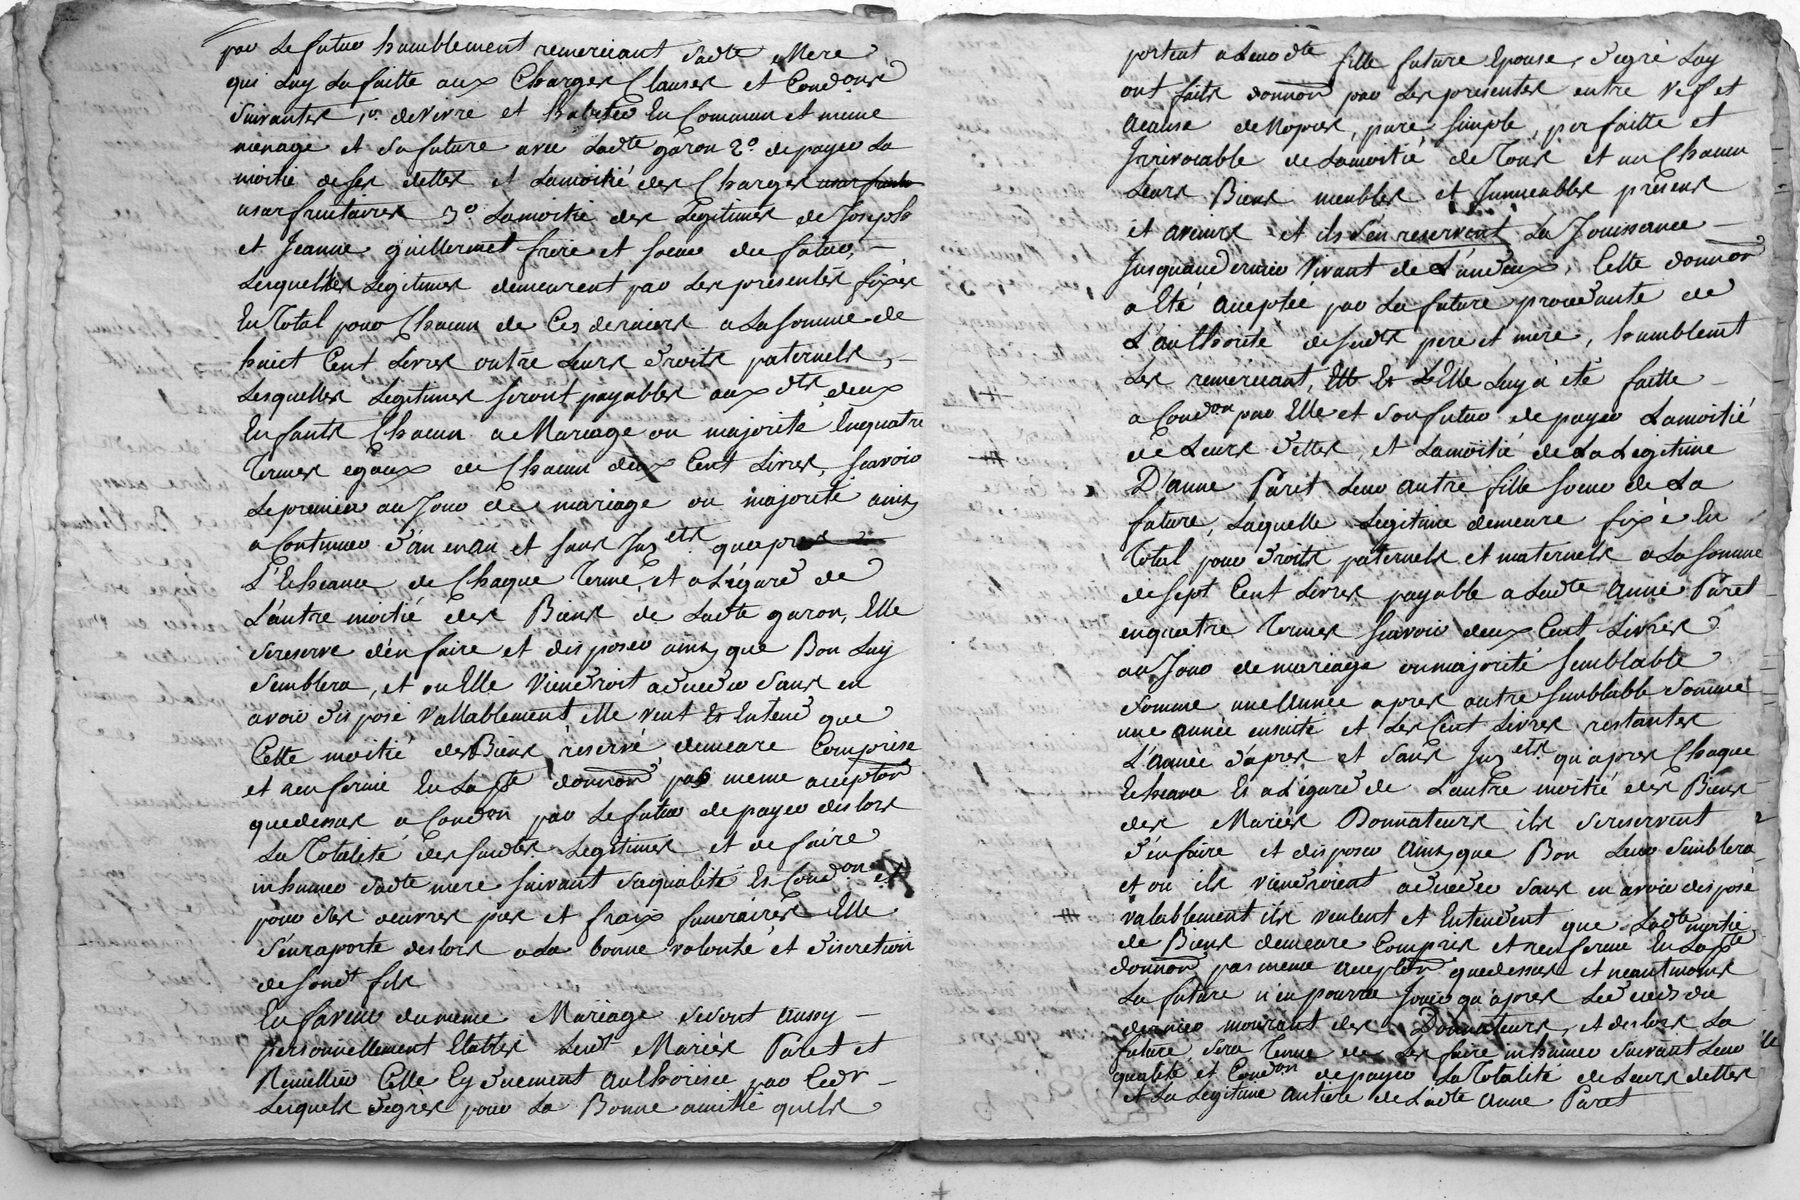 par Le futur humblement remerciant sadte Mere
qui Luy La faitte aux Charges Clauses et Condons
Suivantes 1o. de vivre et habiter En Commun et meme
menage et Sa future avec Ladte garon 2o de payer La
moitie de Ses dettes et Lamoitié des Charges
usurfruitaires 3o Lamoitié des Legitimes de Joseph
et Jeanne guillermet frere et soeur du futur, –
Lesquelles Legitimes demeurent par Les presentes fixés
En Total pour Chacun de Ces derniers a La somme de
huict Cent Livres outre Leurs droits paternels, –
Lesquelles Legitimes seront payables aux dts deux
Enfants Chacun a Mariage ou majorité Enquatre
Termes egaux de Chacun deux Cent Livres, scavoir
Le premier au Jour de mariage ou majorité ainsy
a Continuer d'an en an et sans Ints. que
L'Echeance de Chaque Terme, et a L'égard de
L'autre moitié des Biens de Ladte garon, Elle
se reserve d'en faire et disposer ainsy que Bon Luy
Semblera, et ou Elle viendroit a deceder sans en
avoir disposé vallablement elle veut Et Entend que
Cette moitié des Biens reservé demeure Comprise
et renfermé En La pte donnaon, pas meme acceptaon
que dessus a Condon par Le futur de payer des lors
La Totalité des susdtes Legitimes et de faire
inhumer sadte mere suivant sa qualité Et Condon et
pour des oeuvres pies et fraix funeraires Elle
S'enraporte des lors a La bonne volonté et discretion
de sondt fils
En faveur du meme Mariage se sont aussy –
personnellement Etablis Lesdt Mariés Paret et
Remillier Celle Cy duement authorisée par Ledt –
Lesquels degrés pour La Bonne amitié quils
portent a Leurdte fille future Epouse, degré Luy
ont faits donnaon par Les presentes entre vif et
acause de Nopces, pure simple, perfaitte et
Irrevocable de Lamoitié de Tous et un Chacun
Leurs Biens meubles et Immeubles présens
et avenirs et ils s'en reservent La Jouissance –
Jusquau dernier vivant de L'un deux, Cette donnaon
a Eté acceptée par La future procedante de
L'authorité de susdts pere et mere, humblemt
Les remerciant, Elle Luy a été faitte –
a Condon par Elle et son futur de payer Lamoitié
de Leurs dettes, et Lamoitié de La Legitime
D'anne Paret Leur autre fille soeur de La
future, Laquelle Legitime demeure fixé En
Total pour droits paternels et maternels a La somme
de sept Cent Livres payable a Ladte Anne Paret
en quatre Termes scavoir deux Cent Livres
au Jour de mariage ou majorité semblable
Somme une Année apres autre semblable Somme
une année ensuitte et Les Cent Livres restantes
L'Année d'apres et sans Ints. qu'apres Chaque
Echeance Et a L'égard de L'autre moitié des Biens
des Mariés Donnateurs ils se reservent
d'en faire et disposer Ainsy que Bon Leur Semblera
et ou ils viendroient a deceder sans en avoir disposé
valablement ils veulent et Entendent que Ladte moitie
de Biens demeure Compris et renfermé En La pte
donnaon, pas meme acceptaon que dessus et neantmoins
La future n'en pourra Jouir qu'apres Le deceds du
dernier mourant des Donnateurs, et des lors La
future sera Tenue de Les faire inhumer suivant Leur
qualité et Condon de payer La Totalité de Leurs dettes
et La Legitime antiere de Ladte Anne Paret